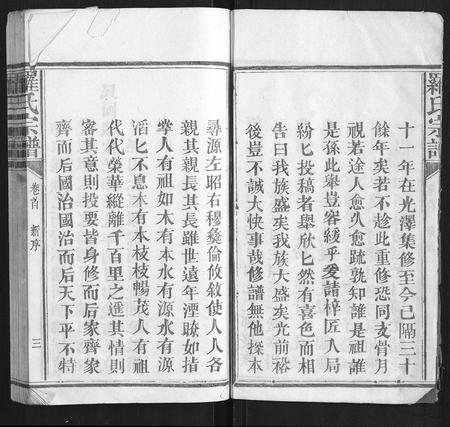 羅氏宗譜
十一年在光澤集修至今已隔三十
餘年矣若不趁此重修恐同支骨月
視若途人愈久愈疏孰知誰是祖誰
是孫此舉豈容緩乎爰請梓匠入局
紛匕投稿者舉欣匕然有喜色而相
告曰我族盛矣我族大盛矣光前裕
後豈不誠大快事哉修譜無他探本
尋源左昭右穆彝倫攸敘使人人各
親其親長其長雖世遠年湮瞭如指
掌人有祖如木有本水有源水有源
滔匕不息木有本枝枝暢茂人有祖
代代榮華縱離千百里之遥其情則
審其意則投要皆身修而后家齊家
齊而后國治國治而后天下平不特
羅氏宗譜
卷首
新序
三